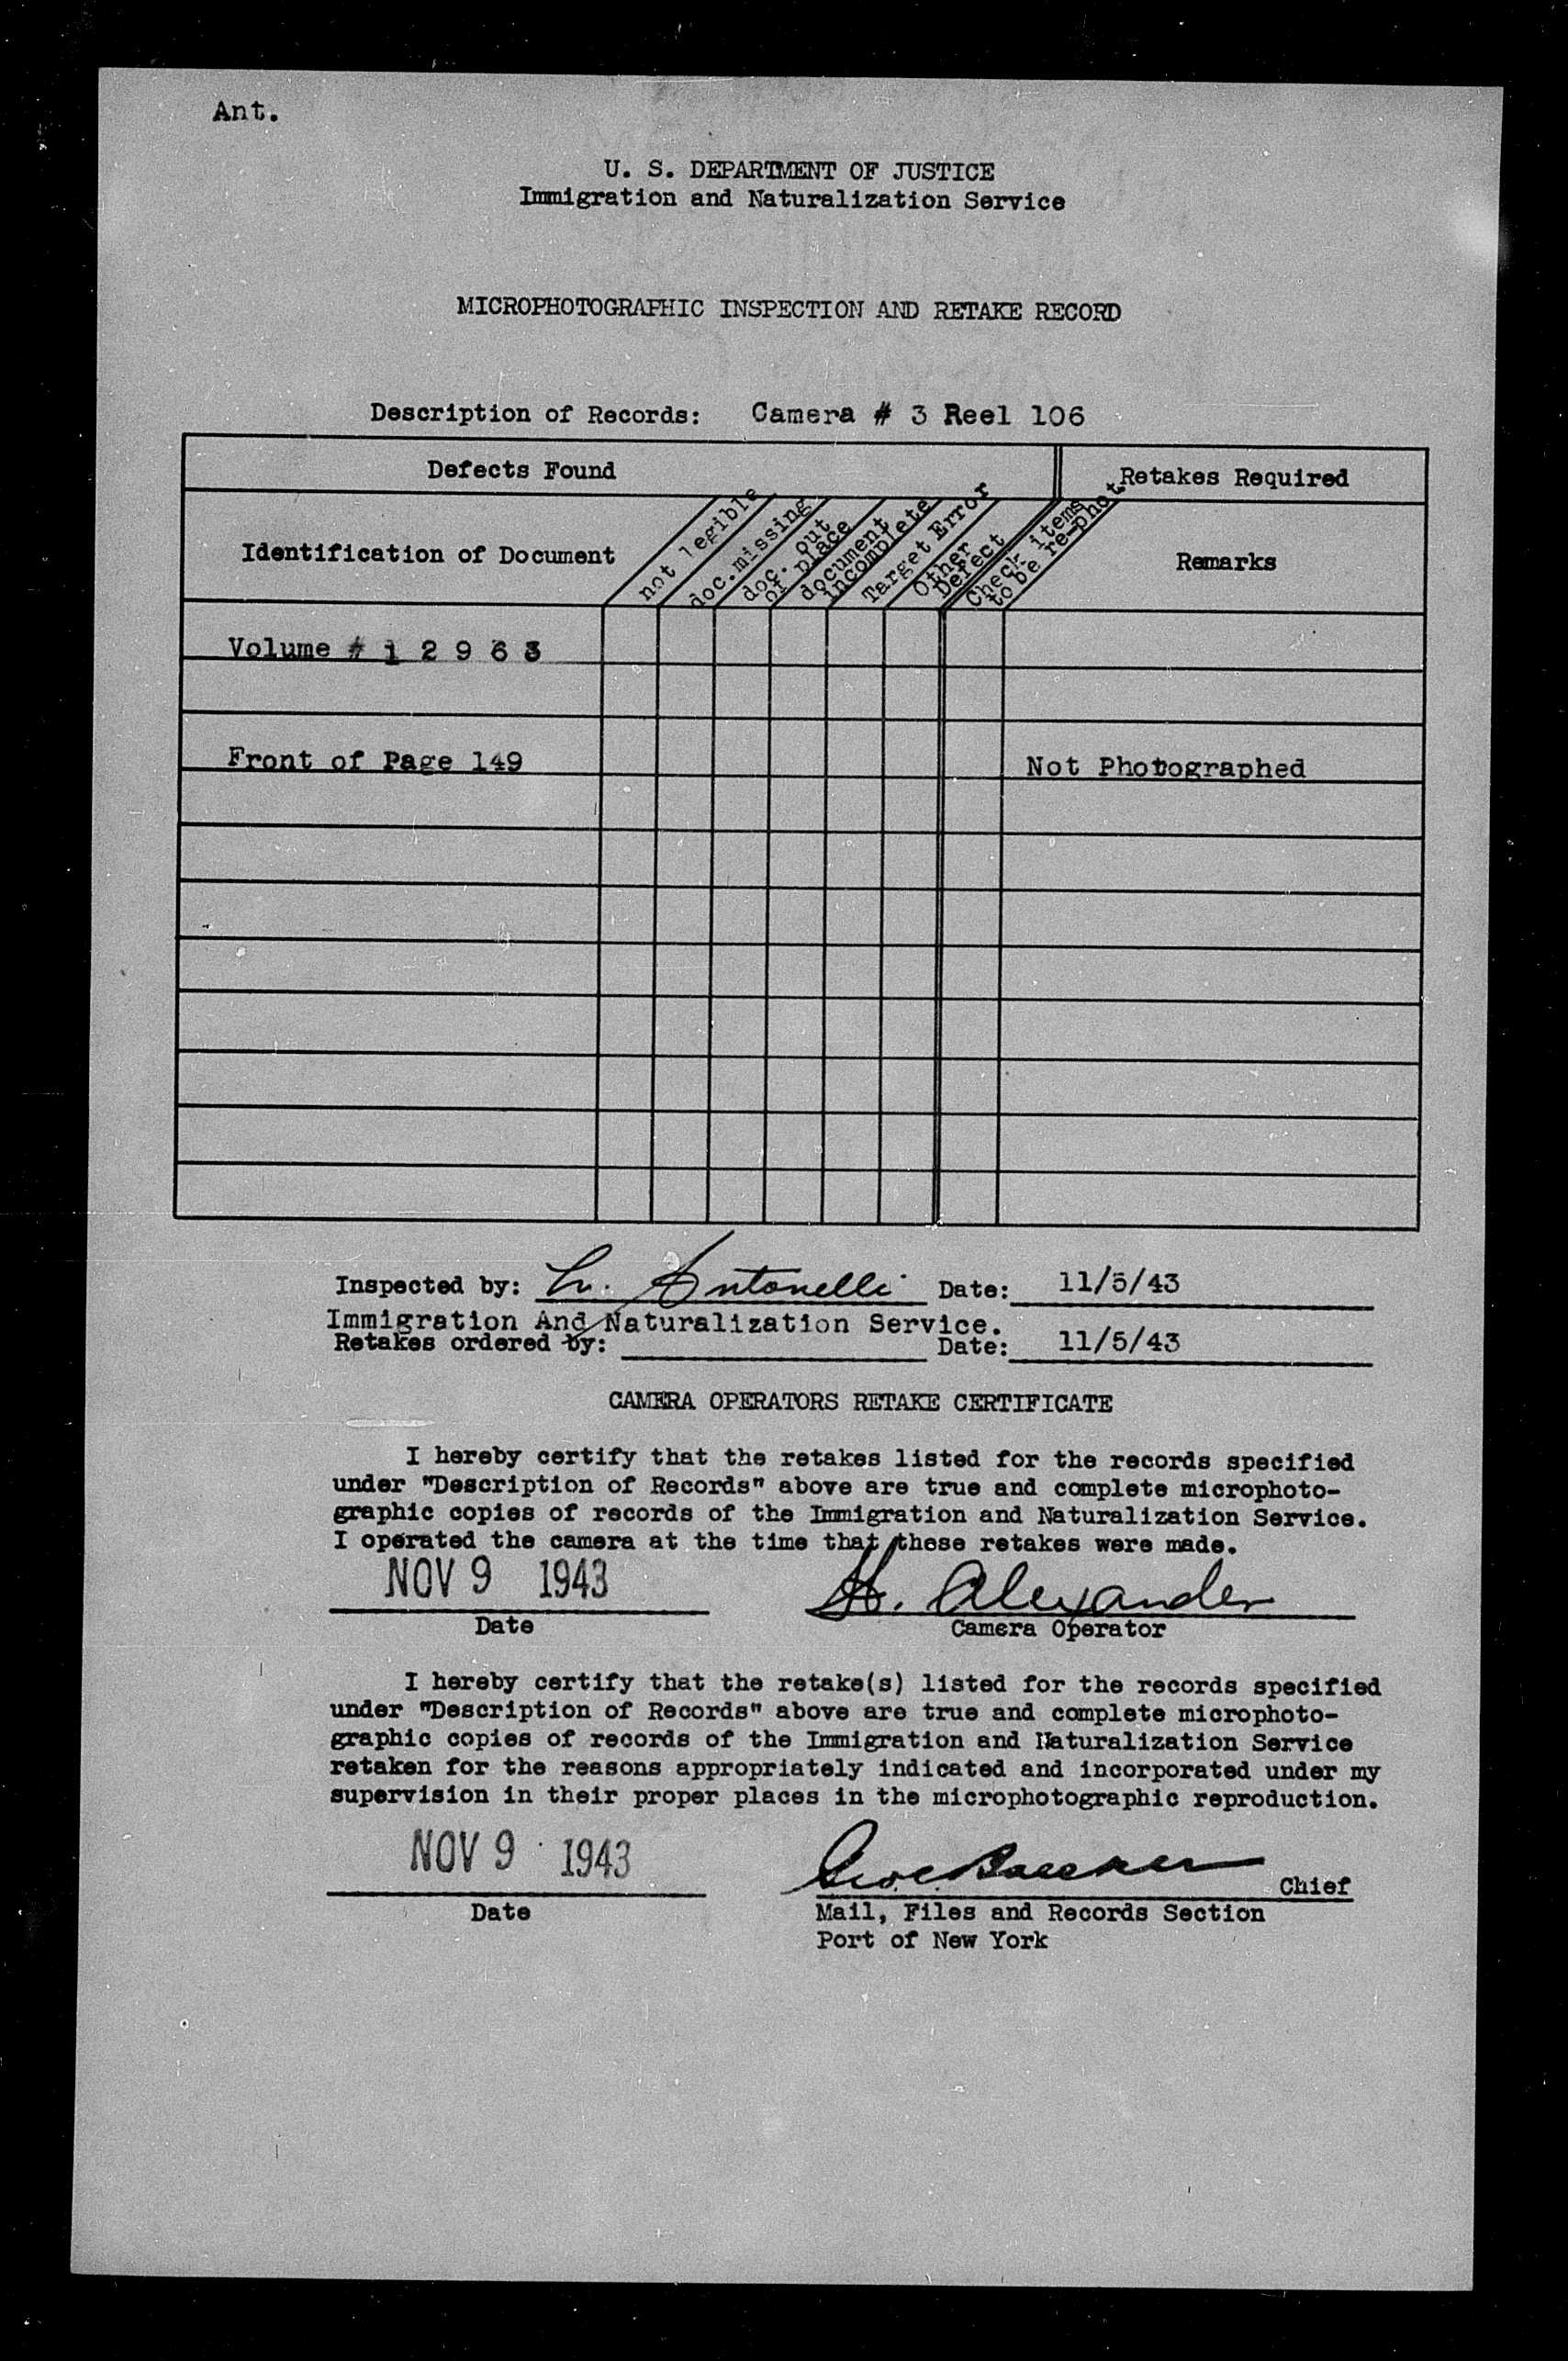 Ant.
U. S. DEPARTMENT OF JUSTICE
Immigration and Naturalization Service
MICROPHOTOGRAPHIC INSPECTION AND RETAKE RECORD
Description of Records: Camera # 3 Reel 106
Defects Found
Retakes Required
Identification of Document
not legible
doc. missing
doc. out
of place
document
incomplete
Target Error
Other
Defect
Check items
to be re-phot
Remarks
Volume # 1 2 9 6 3
Front of Page 149 Not Photographed
Inspected by: L. Antonelli Date: 11/5/43
Immigration And Naturalization Service.
Retakes ordered by: Date: 11/5/43
CAMERA OPERATORS RETAKE CERTIFICATE
I hereby certify that the retakes listed for the records specified
under "Description of Records" above are true and complete microphoto-
graphic copies of records of the Immigration and Naturalization Service.
I operated the camera at the time that these retakes were made.
NOV 9 1943 H. Alexander
Date Camera Operator
I hereby certify that the retake(s) listed for the records specified
under "Description of Records" above are true and complete microphoto-
graphic copies of records of the Immigration and Naturalization Service
retaken for the reasons appropriately indicated and incorporated under my
supervision in their proper places in the microphotographic reproduction.
NOV 9 1943
Chief
Date Mail, Files and Records Section
Port of New York